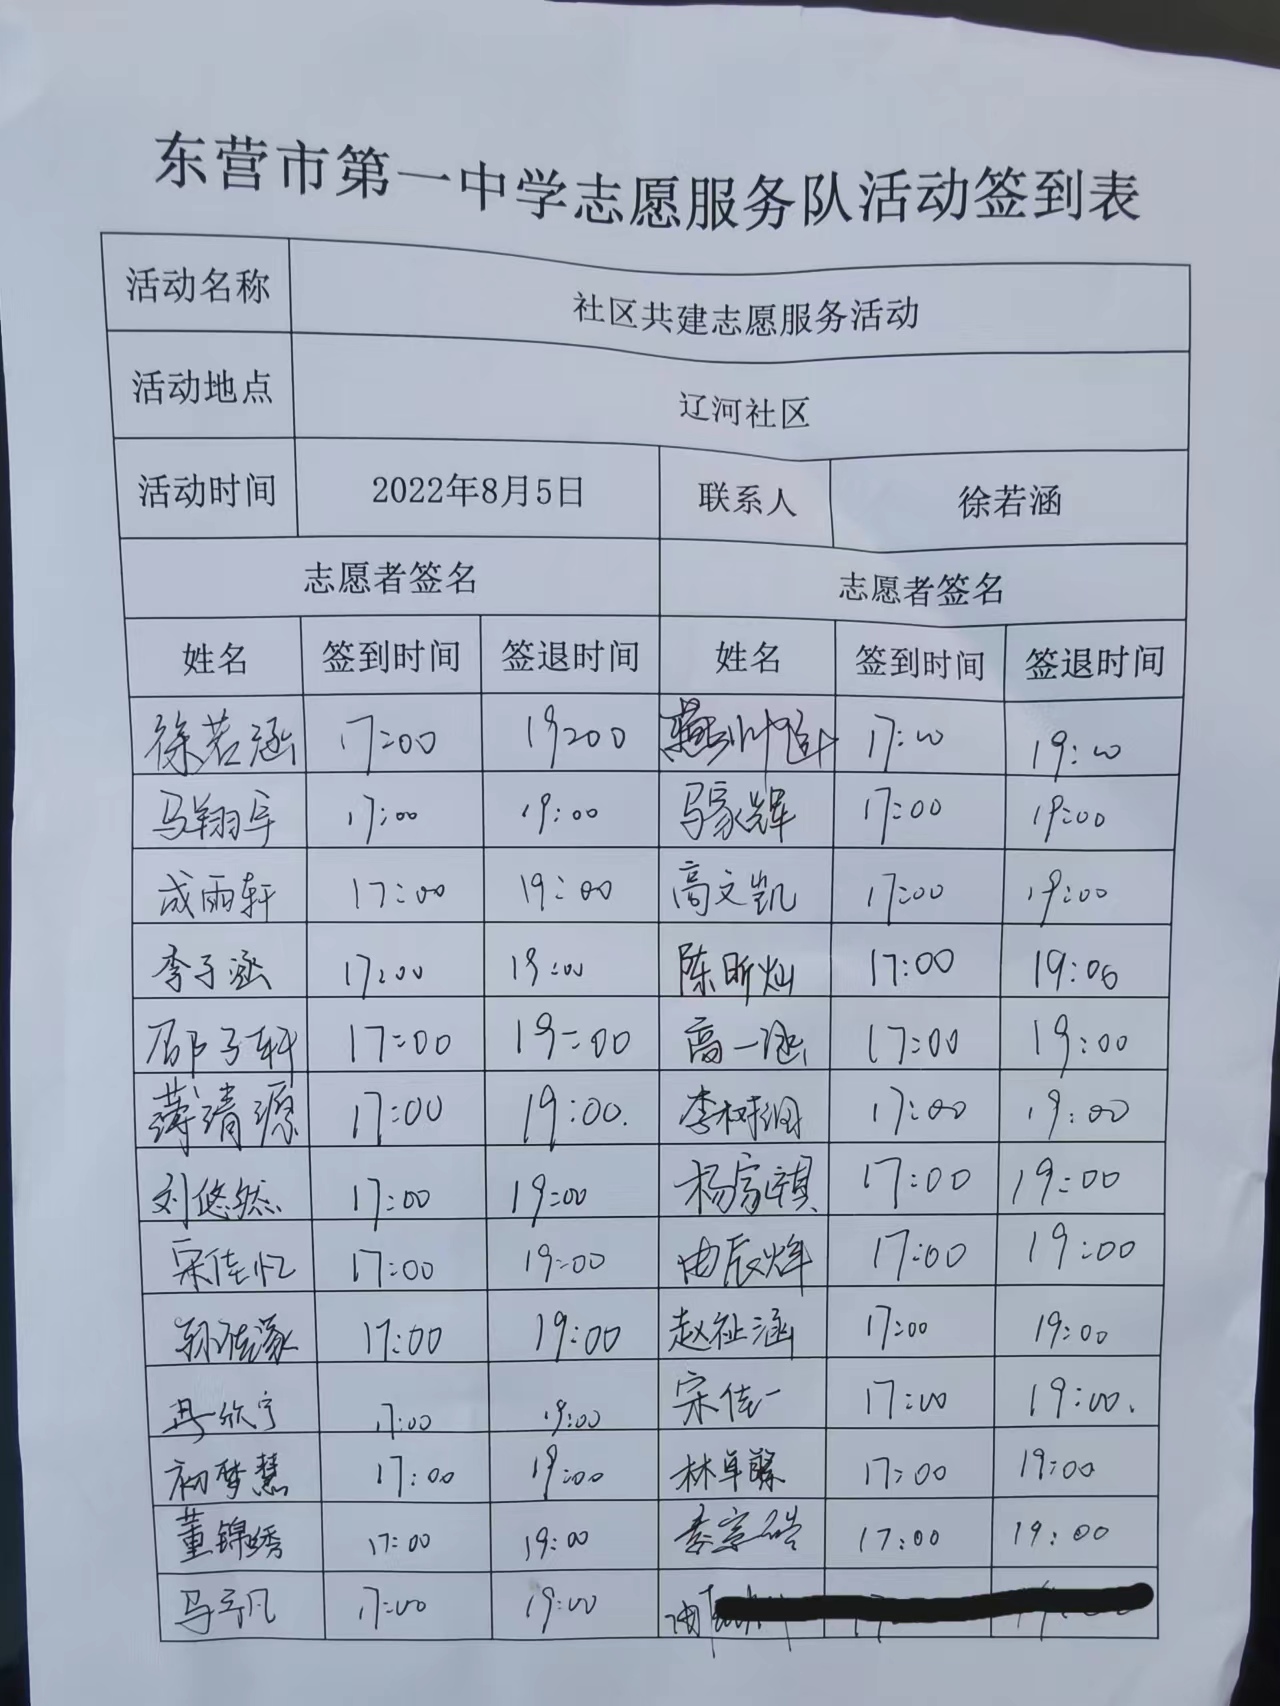 东营市第一中学志愿服务队活动签到表
活动名称 社区共建志愿服务活动
活动地点 辽河社区
活动时间 2022年8月5日 联系人 徐若涵
志愿者签名 志愿者签名
姓名 签到时间 签退时间 姓名 签到时间 签退时间
徐若涵 17:00 19:00 17:00 19:00
马翔宇 17:00 19:00 马家辉 17:00 19:00
成雨轩 17:00 19:00 高文凯 17:00 19:00
李子涵 17:00 19:00 陈昕灿 17:00 19:00
邵子轩 17:00 19:00 高一涵 17:00 19:00
薄清源 17:00 19:00. 李树润 17:00 19:00
刘悠然 17:00 19:00 杨富祺 17:00 19:00
宋佳忆 17:00 19:00 由辰烨 17:00 19:00
17:00 19:00 赵祉涵 17:00 19:00
冉欣宁 17:00 19:00 宋佳一 17:00 19:00.
初梦慧 17:00 19:00 林卓馨 17:00 19:00
董锦绣 17:00 19:00 李宗皓 17:00 19:00
马子凡 17:00 19:00